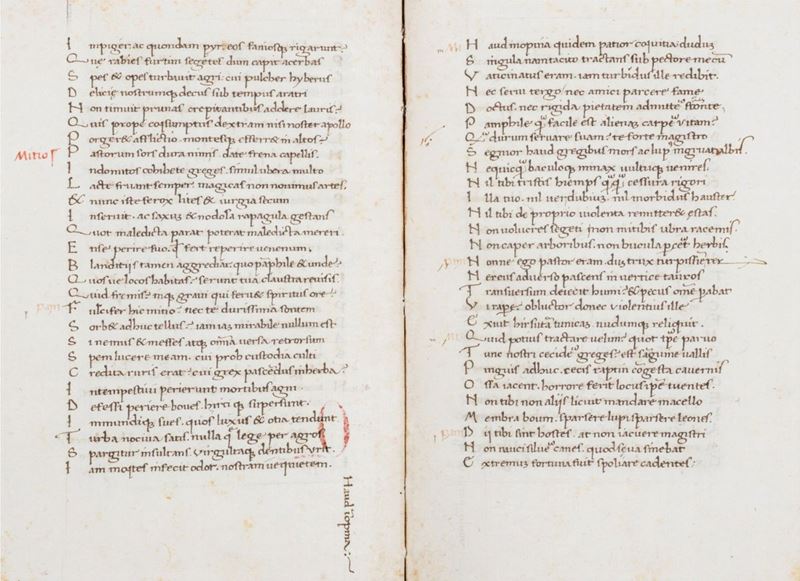 I mpiger: ac quondam pyreos famosq; rigarunt
Q ue rabies furtum segetes dum capit acerbas
S pes & opes turbavit agri: cui pulcher hyberus
D elicie nostrumq; decus sub tempus aratri
N on timuit prunas crepitantibus addere lauris:
Q uis prope cosumptus dextram nisi noster apollo
P orger& afflicto montesq; efferr& in altos
Mitio P astorum sors dura nimis. date frena capellis
I ndomitos cohibete greges. simul ubera multo
L acte fluant semper magicas non novimus artes.
& nunc iste ferox lites & iurgia secum
I nseruit. ac saxum & nodosa repagula gestans
Q uot maledicta parat poterat maledicta mereri.
E nse perire suo. fert reperire venenum.
B landitiis tamen aggrediar. quo paphile & unde
Q uos ve locos habitas. servant tua claustra revisis.
Q uid fremis. mq; gravi qui feru& spiritus ore
F ulcifer hic mitio. nec te durissima sontem
S orb& adhuc tellus. iam iam mirabile nullum est
S i nemus & messes atq; omia versa retrorsum
S pem lucere meam. cui prob custodia culti
C redita ruris erat. cui grex pascedus in herba
I ntempestivi perierunt mortibus agni.
D efessi periere boves. hirci q; supersunt.
I nmundiq; sues. quos luxus & otia tendunt
T urba nociva satis nulla q; lege per agros
S pargitur insultans virgultaq; dentibus urit.
I am mostes infecit odor. nostram ve quietem.
Haud iopina
H aud inopina quidem patior coiuitia dudum
S ingula nam tacito tractans sub pectore mecu
V aticinatus eram. iam turbidus ille redibit.
N ec seru tergo nec amici parcere fame
D octus. nec rigida pietatem admitte fronte.
P amphile q facile est alienam carpe vitam
16 Q durum servare suam. te forte magistro
S egnior haud gregibus mors ac lup ingruat albis
N equicq baculoq; minax vultuq; venires.
N il tibi tristis hiemps cessura rigori
I lla nivo. nil ver dubium. nil morbidus hauster
N il tibi de proprio violenta remitter& estas.
N on volucres segeti non mitibus uvra racemis
N on caper arboribus. non bucula pcet herbis.
N onne ego pastor eram. dis trux turpissime
N ereus adverso pascens in vertice tauros
T ransversum deiecit humi. & pecus ome parabat
V i rape. obluctor donec violentius ille
E xuit hirsuta tunicam nudumq; reliquit.
Q uid potius tractare velim quot ipe parvo
T unc nostri cecide greges. est sangine vallis
P inguis adhuc. cecis raptim cogesta cavernis
O ssa iacent. horrore ferit locus ipe tuentes.
N on tibi non aliis licuit mandare macello
M embra boum. sparsere lupi sparsere leones.
D ii tibi sint hostes. at non iacuere magistri
N on rauci silve canes. quod seva sinebat
E xtremum fortuna fuit spoliare cadentes.